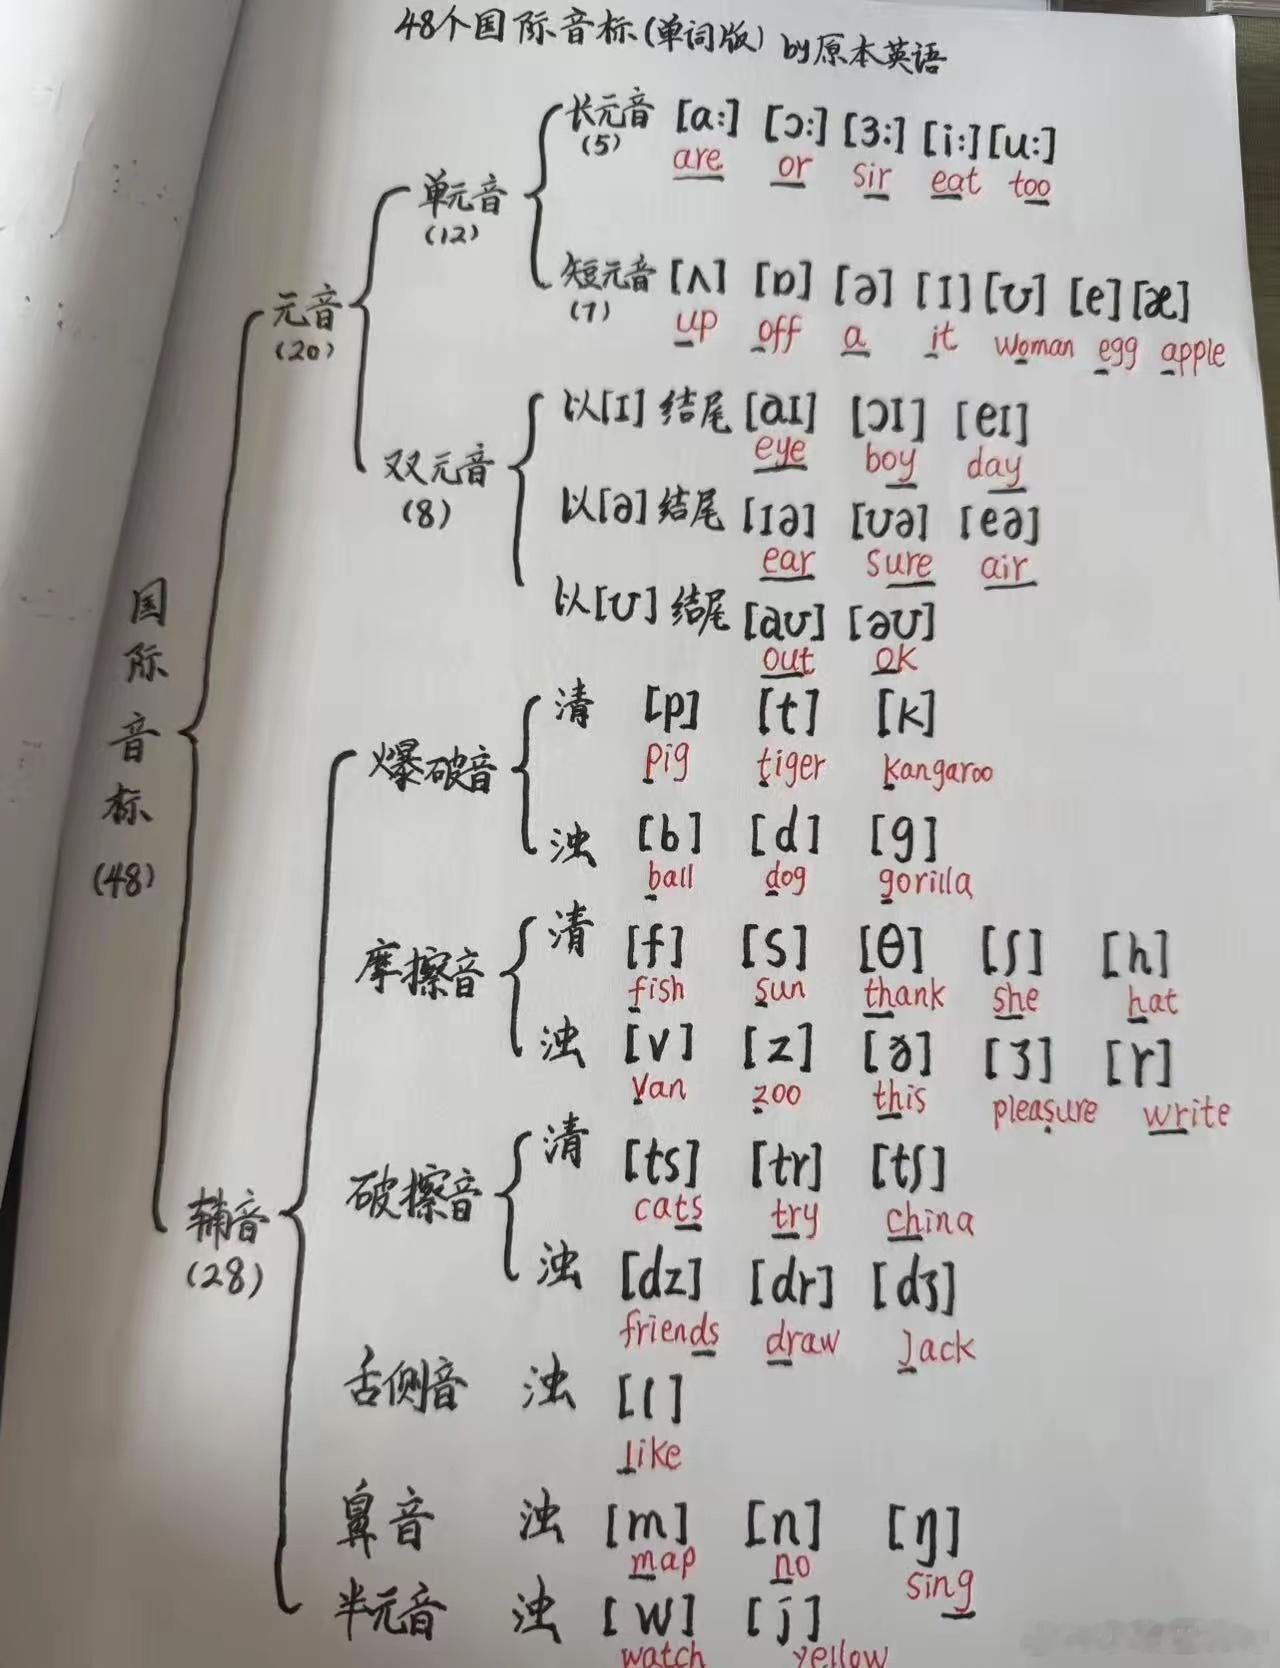 48个国际音标(单词版) by原本英语
长元音 [ɑ:] [ɔ:] [ɜ:] [i:] [u:]
(5) are or sir eat too
单元音
(12)
短元音 [ʌ] [ɒ] [ə] [ɪ] [ʊ] [e] [æ]
(7) up off a it woman egg apple
元音
(20)
以[ɪ]结尾 [aɪ] [ɔɪ] [eɪ]
eye boy day
双元音
(8)
以[ə]结尾 [ɪə] [ʊə] [eə]
ear sure air
以[ʊ]结尾 [aʊ] [əʊ]
out ok
国际音标
(48)
清 [p] [t] [k]
pig tiger kangaroo
爆破音
浊 [b] [d] [g]
ball dog gorilla
清 [f] [s] [θ] [ʃ] [h]
fish sun thank she hat
摩擦音
浊 [v] [z] [ð] [ʒ] [r]
van zoo this pleasure write
清 [ts] [tr] [tʃ]
cats try china
破擦音
辅音
(28)
浊 [dz] [dr] [dʒ]
friends draw Jack
舌侧音 浊 [l]
like
鼻音 浊 [m] [n] [ŋ]
map no sing
半元音 浊 [w] [j]
watch yellow